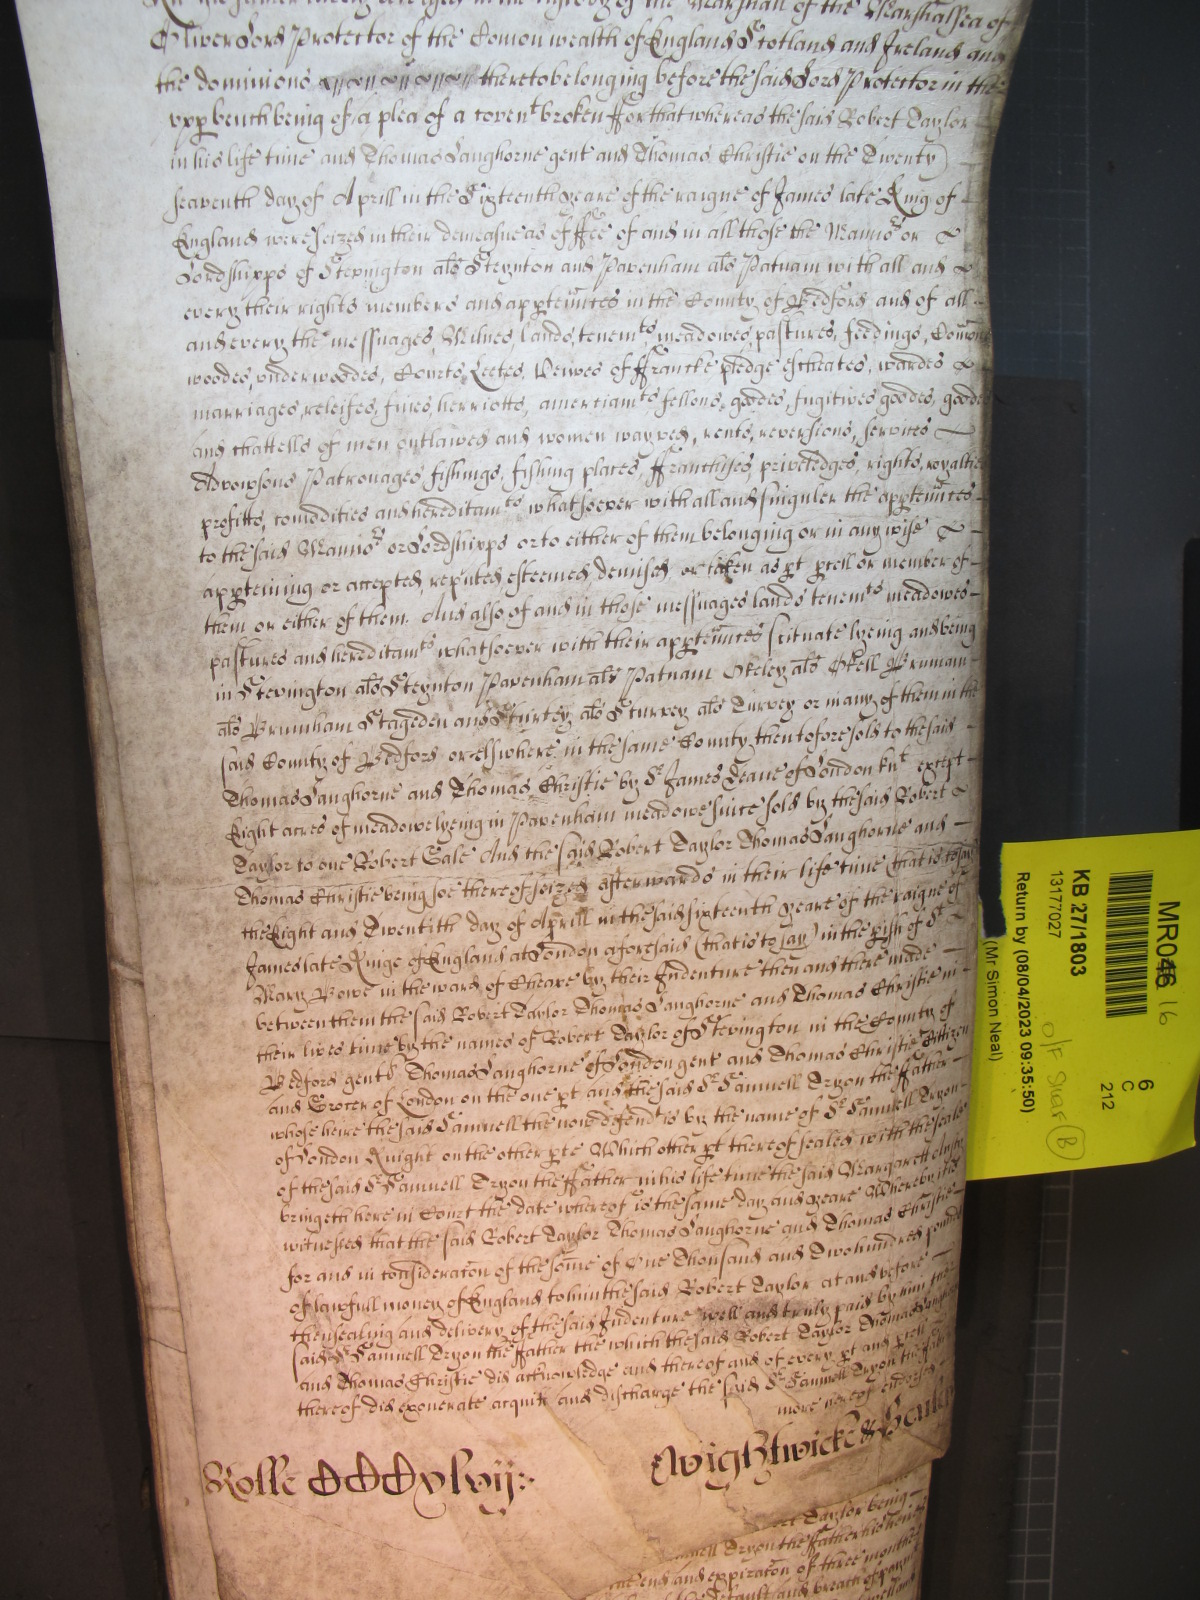 in the custody of the Marshall of the Marshallsea of
Oliver Lord Protector of the Comon wealth of England Scotland and Ireland and
the dominions theretobelonging before the said Lord Protector in the
upp bench being of a plea of a coven^t broken ffor that whereas the said Robert Taylor
in his life time and Thomas Langhorne gent and Thomas Christie on the Twenty
seaventh day of Aprill in the Sixteenth yeare of the raigne of James late King of
England were seized in their demeasne as of ffee of and in all those the Manno^rs or
Lordshipps of Stevington als Steynton and Pavenham als Patnam with all and
every their rights members and apptennces in the County of Bedford and of all
and every the messuages, Milnes, lands, tenem^ts meadowes, pastures, feedings, Comons
woodes, underwoodes, Courts, Leetes, Veiwes of ffrancke pledge escheates, wardes
marriages, releifes, fines, herriotts, amerciam^ts fellons, goodes, fugitives goodes, goodes
and chattells of men outlawed and women wayved, rents, reversions, services
Advowsons Patronages fishings, fishing places, ffranchises, priveledges, rights, royalties
profitts, comodities and hereditam^ts whatsoever with all and singuler the apptennces
to the said Manno^rs or Lordshipps or to either of them belonging or in any wise
appteining or accepted, reputed esteemed, demised, or taken as pt pcell or member of
them or either of them. And also of and in those messuages lands tenem^ts meadowes
pastures and hereditam^ts whatsoever with their apptennces scituate lyeing and being
in Stevington als Steynton Pavenham als Patnam Okeley als Okell Brumam
als Brumham Stageden and Sturtey als Sturvey als Turvey or in any of them in the
said County of Bedford or elswhere in the same County then tofore sold to the said
Thomas Langhorne and Thomas Christie by S^r James Deane of London kn^t except
Eight acres of meadowe lyeing in Pavenham meadowe since sold by the said Robert
Taylor to one Robert Gale And the said Robert Taylor Thomas Langhorne and
Thomas Christie being soe thereof seized afterwards in their life time (that is to say
the Eight and Twentith day of Aprill in the said sixteenth yeare of the raigne of
James late Kinge of England at London aforesaid (that is to say) in the pish of S^t
Mary Bowe in the ward of Cheape by their Indenture then and there made
between them the said Robert Taylor Thomas Langhorne and Thomas Christie in
their lives time by the names of Robert Taylor of Stevington in the County of
Bedford gent Thomas Langhorne of London gent and Thomas Christie Citizen
and Grocer of London on the one pt and the said S^r Samuell Tryon the ffather
whose heire the said Samuell the now defend^t is by the name of S^r Samuell Tryon
of London Knight on the other pte Which other pt thereof sealed with the seales
of the said S^r Samuell Tryon the ffather in his life time the said Margarett
bringeth here in Court the date whereof is the same day and yeare Whereby it is
witnessed that the said Robert Taylor Thomas Langhorne and Thomas Christie
for and in consideracon of the some of One Thousand and Two hundred pounds
of lawfull money of England to him the said Robert Taylor at and before
thensealing and delivery of the said Indenture well and truly paid by him the
said S^r Samuell Tryon the ffather the which the said Robert Taylor Thomas Langhorne
and Thomas Christie did acknowledge and thereof and of every pt and pcell
thereof did exonerate acquite and discharge the said S^r Samuell Tryon the ffather
more hereof endorsed
Rolle CCCCxlvij: Wightwicke &
Taylor being
Samuell Tryon the ffather his heires
the end and expiracon of three months
default and breach of paym^t
MR046 16
KB 27/1803
13177027
Return by (08/04/2023 09:35:50)
(Mr Simon Neal)
6
C
212
B